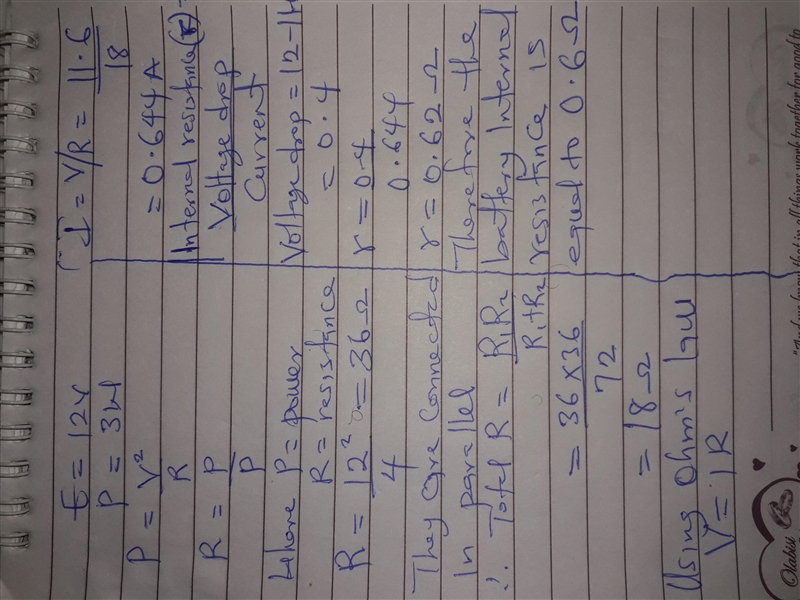 E = 12v
P = 3W
P = V²
R
R = P
P
Where P = power
R = resistance
R = 12² = 36Ω
4
They are connected
in parallel
∴ Total R = R₁R₂
R₁+R₂
= 36×36
72
= 18Ω
Using Ohm's law
V = IR
I = V/R = 11.6
18
= 0.644A
Internal resistance(r) =
Voltage drop
Current
Voltage drop = 12-11
= 0.4
r = 0.4
0.644
r = 0.62Ω
Therefore the
battery internal
resistance is
equal to 0.6Ω
all things work together for good to